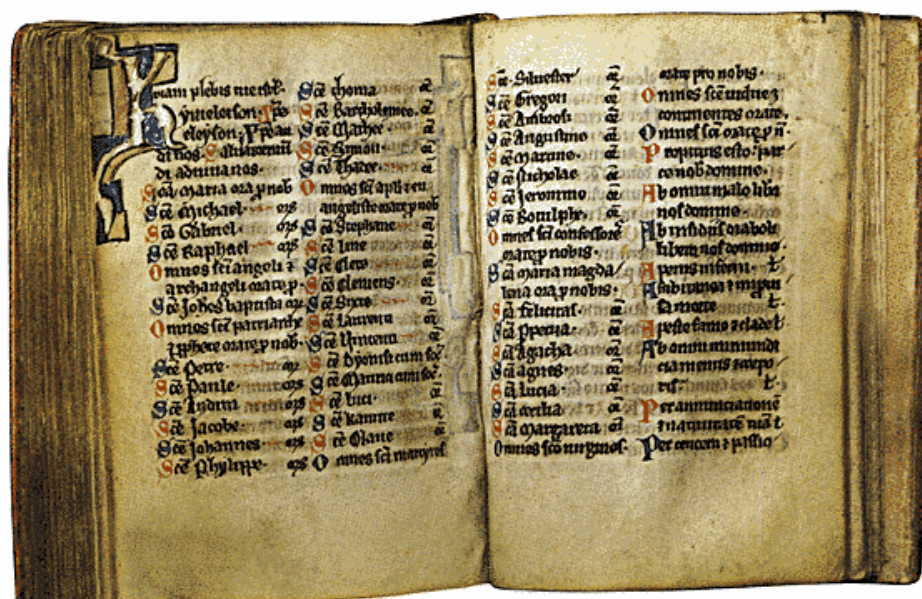 plebis
Kyrieleison
eleyson
Scā maria ora p nob
Scē Michael ors
Scē Gabriel ors
Scē Raphael ors
Omnes scī angeli ⁊
archangeli orate p
Scē Johēs baptista ors
Omnes scī patriarche
⁊ pphete orate p nob
Scē Petre ors
Scē Paule ors
Scē Andrea ors
Scē Jacobe ors
Scē Johannes ors
Scē Phylippe ors
Scē thoma
Scē Bartholomee
Scē Mathee
Scē Simon
Scē Thadee
Omnes scī apli ⁊ eu
angeliste orate p nob
Scē Stephane
Scē Line
Scē Clete
Scē Clemens
Scē Sixte
Scē Laurenti
Scē Vincenti
Scē Dyonisi cum soc
Scē Maurici cum soc
Scē
Scē Kanute
Scē Olaue
Omnes scī martyres
Scē Siluester
Scē Gregori
Scē Ambrosi
Scē Augustine
Scē Martine
Scē Nicholae
Scē Jeronimo
Scē Botulphe
Omnes scī confessores
orate p nobis
Scā maria magda
lena ora p nobis
Scā felicitas
Scā Ppetua
Scā Agatha
Scā agnes
Scā Lucia
Scā cecilia
Scā Margareta
Omnes scē uirgines
orate pro nobis
Omnes scī
orate
Omnes scī orate p n
Propitius esto par
ce nob domine
Ab omni malo libera
nos domine
Ab insidiis diaboli
libera nos domine
A penis inferni
A subitanea ⁊ inproui
sa morte
A peste fame ⁊ clade
Ab omni inmundi
cia mentis ⁊ corpo
ris
Per annunciationē
⁊ natiuitatē
Per ⁊ passio